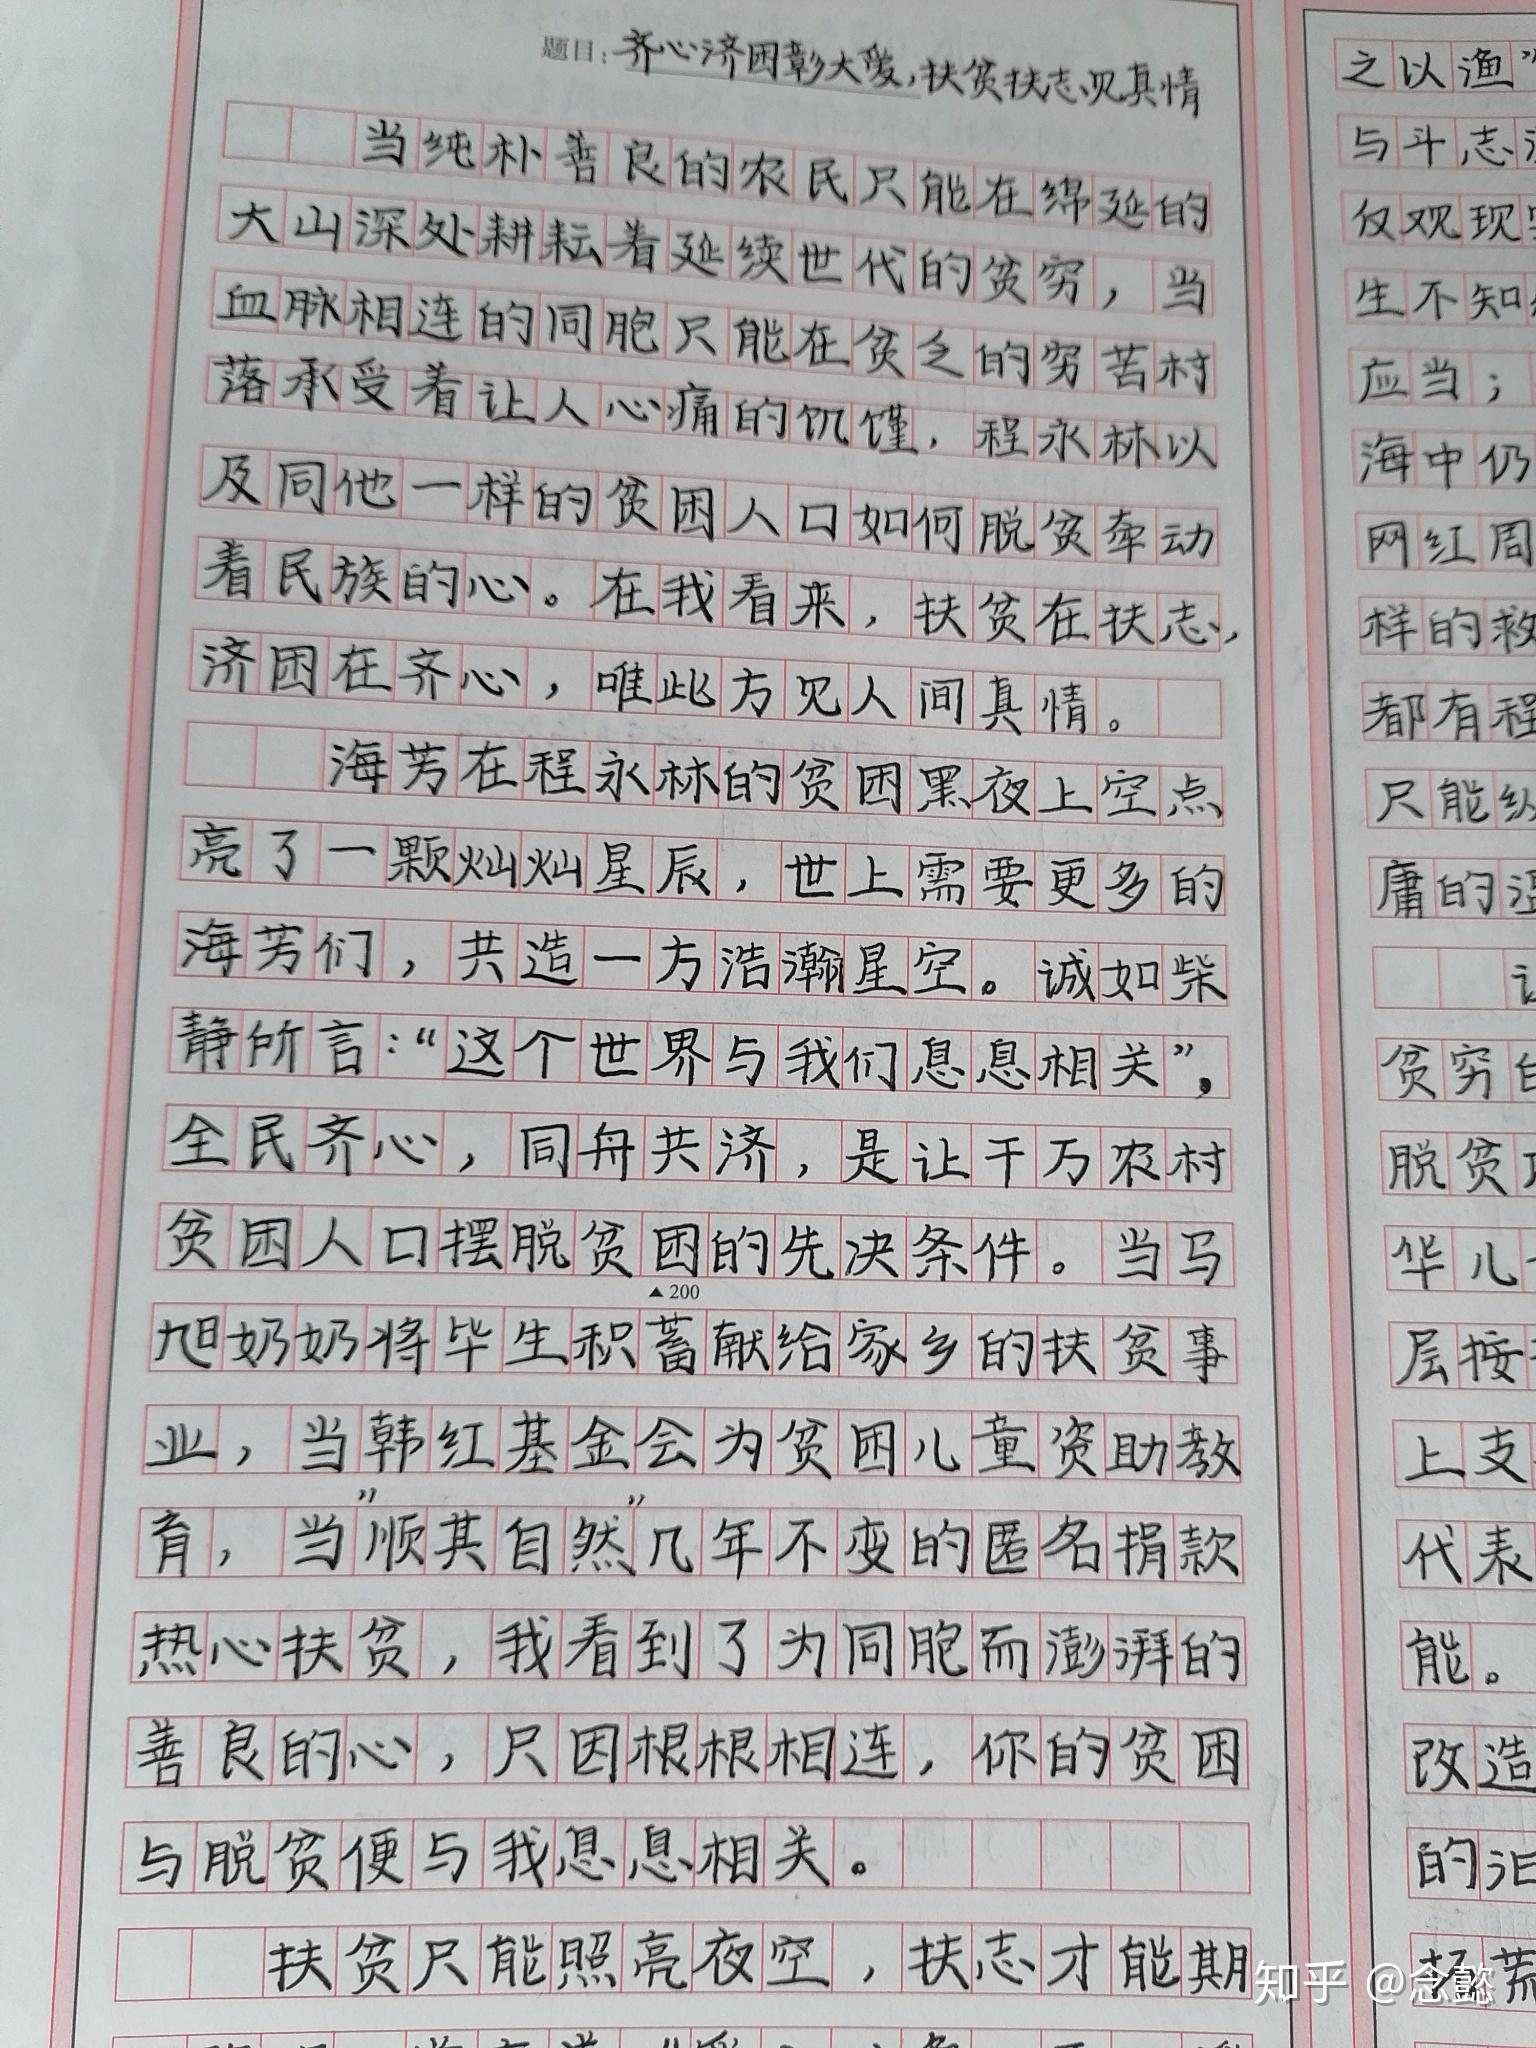 题目:齐心济困彰大爱,扶贫扶志见真情
当纯朴善良的农民只能在绵延的
大山深处耕耘着延续世代的贫穷，当
血脉相连的同胞只能在贫乏的穷苦村
落承受着让人心痛的饥馑，程永林以
及同他一样的贫困人口如何脱贫牵动
着民族的心。在我看来，扶贫在扶志，
济困在齐心，唯此方见人间真情。
海芳在程永林的贫困黑夜上空点
亮了一颗灿灿星辰，世上需要更多的
海芳们，共造一方浩瀚星空。诚如柴
静所言：“这个世界与我们息息相关”，
全民齐心，同舟共济，是让千万农村
贫困人口摆脱贫困的先决条件。当马
▲200
旭奶奶将毕生积蓄献给家乡的扶贫事
业，当韩红基金会为贫困儿童资助教
育，当”顺其自然”几年不变的匿名捐款
热心扶贫，我看到了为同胞而澎湃的
善良的心，只因根根相连，你的贫困
与脱贫便与我息息相关。
扶贫只能照亮夜空，扶志才能期
之以渔”
与斗志
仅观现
生不知
应当；
海中仍
网红周
样的救
都有程
只能纵
庸的温
贫穷
脱贫
华儿
层接
上支
代表
能。
改造
的汩
杨荒
知乎 @念懿